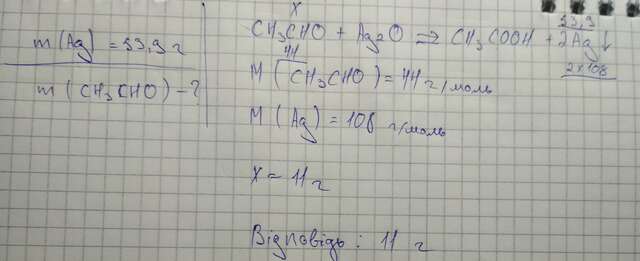 m(Ag) = 53,9 г
m(CH₃CHO) - ?
x 53,9
CH₃CHO + Ag₂O => CH₃COOH + 2Ag↓
44 2×108
M(CH₃CHO) = 44 г/моль
M(Ag) = 108 г/моль
x = 11 г
Відповідь: 11 г